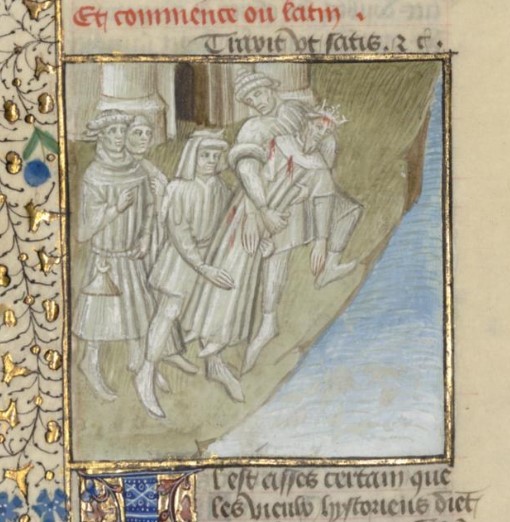 Et commence ou latin .
Tinuit vt satis . ⁊ cͤ .
l est asses certain que
les vieulx hystoriens dient